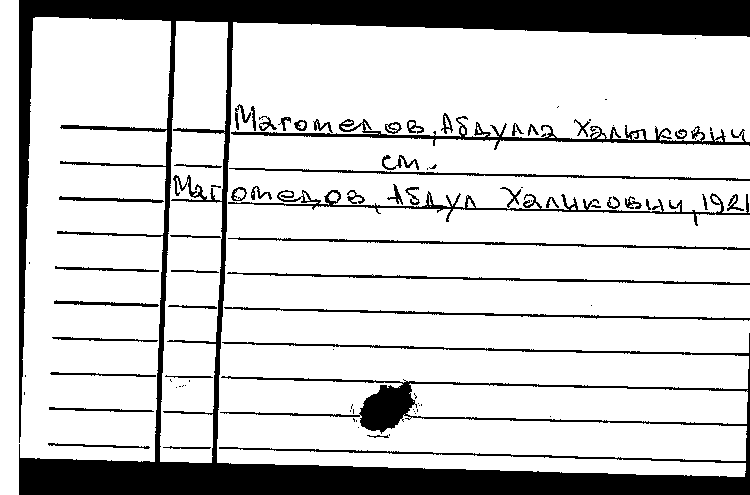 Магомедов, Абдулла Халыкович
см.
Магомедов, Абдул Халикович, 1921